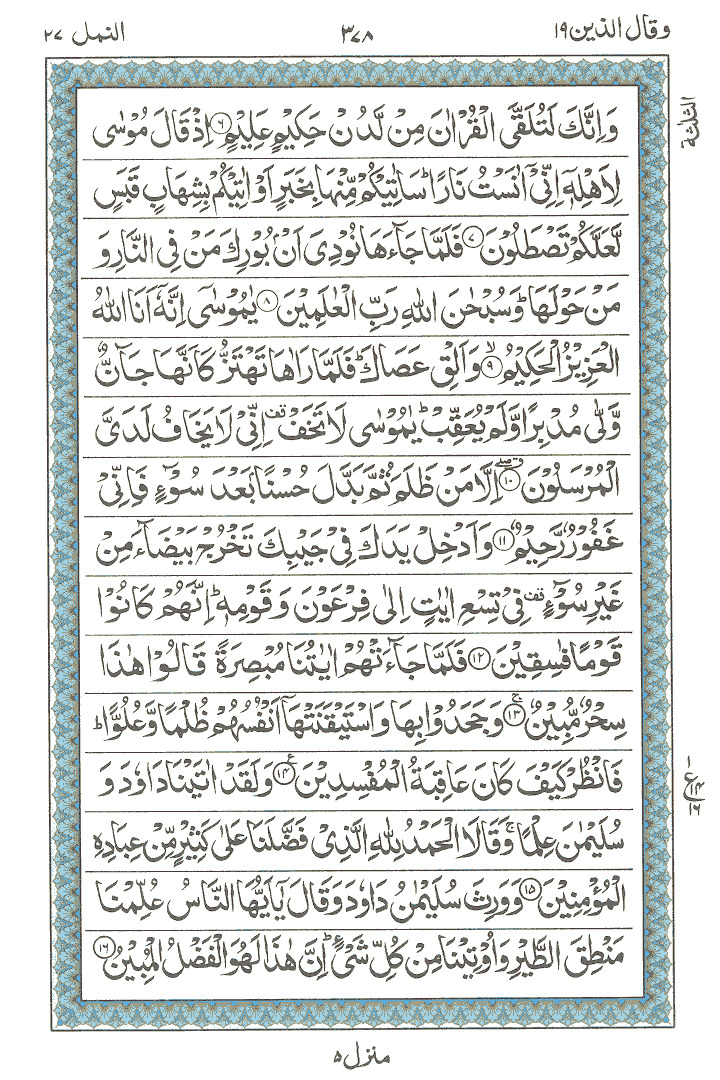 وقال الذين ١٩
٣٧٨
النمل ٢٧
الثلثة
وَاِنَّكَ لَتُلَقَّى الْقُرْاٰنَ مِنْ لَّدُنْ حَكِيْمٍ عَلِيْمٍ ۝۶ اِذْ قَالَ مُوْسٰى
لِاَهْلِهٖٓ اِنِّىْٓ اٰنَسْتُ نَارًا ؕ سَاٰتِيْكُمْ مِّنْهَا بِخَبَرٍ اَوْ اٰتِيْكُمْ بِشِهَابٍ قَبَسٍ
لَّعَلَّكُمْ تَصْطَلُوْنَ ۝۷ فَلَمَّا جَآءَهَا نُوْدِىَ اَنْۢ بُوْرِكَ مَنْ فِى النَّارِ وَ
مَنْ حَوْلَهَا ؕ وَسُبْحٰنَ اللّٰهِ رَبِّ الْعٰلَمِيْنَ ۝۸ يٰمُوْسٰٓى اِنَّهٗٓ اَنَا اللّٰهُ
الْعَزِيْزُ الْحَكِيْمُ ۝۹ ۙ وَاَلْقِ عَصَاكَ ؕ فَلَمَّا رَاٰهَا تَهْتَزُّ كَاَنَّهَا جَآنٌّ
وَّلّٰى مُدْبِرًا وَّلَمْ يُعَقِّبْ ؕ يٰمُوْسٰى لَا تَخَفْ قف اِنِّىْ لَا يَخَافُ لَدَىَّ
الْمُرْسَلُوْنَ ۝۱۰ ۖق اِلَّا مَنْ ظَلَمَ ثُمَّ بَدَّلَ حُسْنًۢا بَعْدَ سُوْٓءٍ فَاِنِّىْ
غَفُوْرٌ رَّحِيْمٌ ۝۱۱ وَاَدْخِلْ يَدَكَ فِىْ جَيْبِكَ تَخْرُجْ بَيْضَآءَ مِنْ
غَيْرِ سُوْٓءٍ قف فِىْ تِسْعِ اٰيٰتٍ اِلٰى فِرْعَوْنَ وَقَوْمِهٖ ؕ اِنَّهُمْ كَانُوْا
قَوْمًا فٰسِقِيْنَ ۝۱۲ فَلَمَّا جَآءَتْهُمْ اٰيٰتُنَا مُبْصِرَةً قَالُوْا هٰذَا
سِحْرٌ مُّبِيْنٌ ۝۱۳ ۚ وَجَحَدُوْا بِهَا وَاسْتَيْقَنَتْهَآ اَنْفُسُهُمْ ظُلْمًا وَّعُلُوًّا ؕ
فَانْظُرْ كَيْفَ كَانَ عَاقِبَةُ الْمُفْسِدِيْنَ ۝۱۴ ع وَلَقَدْ اٰتَيْنَا دَاوٗدَ وَ
سُلَيْمٰنَ عِلْمًا ۚ وَقَالَا الْحَمْدُ لِلّٰهِ الَّذِىْ فَضَّلَنَا عَلٰى كَثِيْرٍ مِّنْ عِبَادِهِ
الْمُؤْمِنِيْنَ ۝۱۵ وَوَرِثَ سُلَيْمٰنُ دَاوٗدَ وَقَالَ يٰٓاَيُّهَا النَّاسُ عُلِّمْنَا
مَنْطِقَ الطَّيْرِ وَاُوْتِيْنَا مِنْ كُلِّ شَىْءٍ ؕ اِنَّ هٰذَا لَهُوَ الْفَضْلُ الْمُبِيْنُ ۝۱۶
١
ع ١۴
١٦
منزل ۵